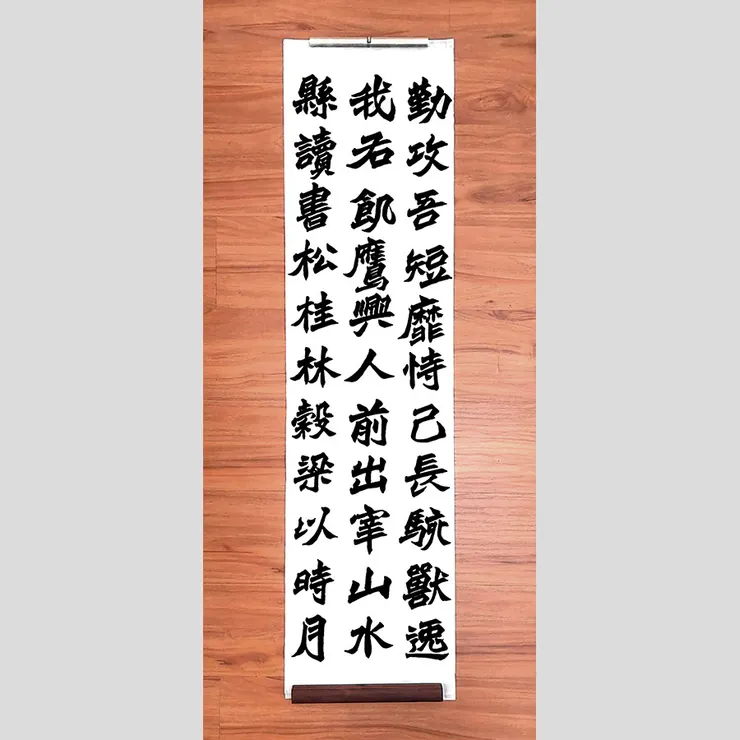 勤攻吾短靡恃己長駭獸逸
我若飢鷹興人前出宰山水
縣讀書松桂林穀梁以時月